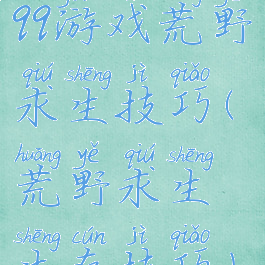 99游戏荒野
qiú shēng jì qiǎo
求生技巧(
huāng yě qiú shēng
荒野求生
shēng cún jì qiǎo
生存技巧)